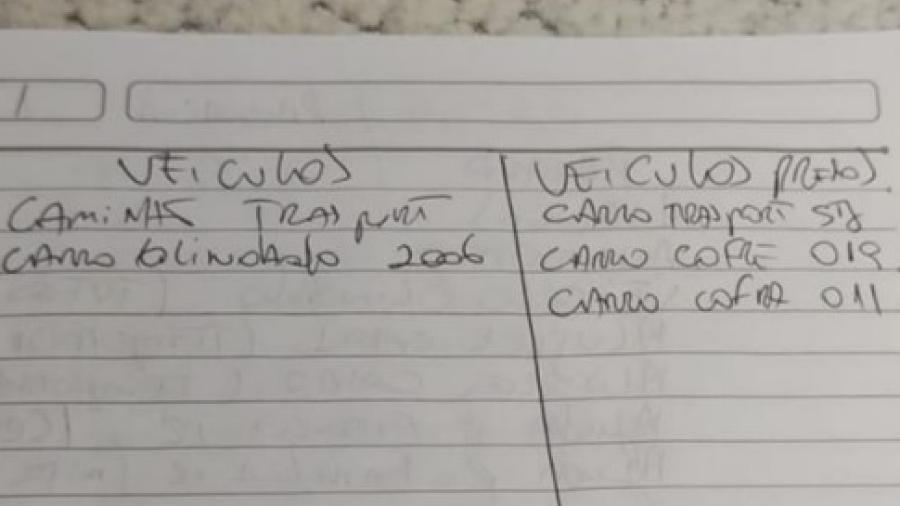 VEICULOS
CAMINAS TRASPORT
CARRO BLINDADO 2006
VEICULOS PRETOS
CARRO TRASPORT
CARRO COFRE 019
CARRO COFRE 011